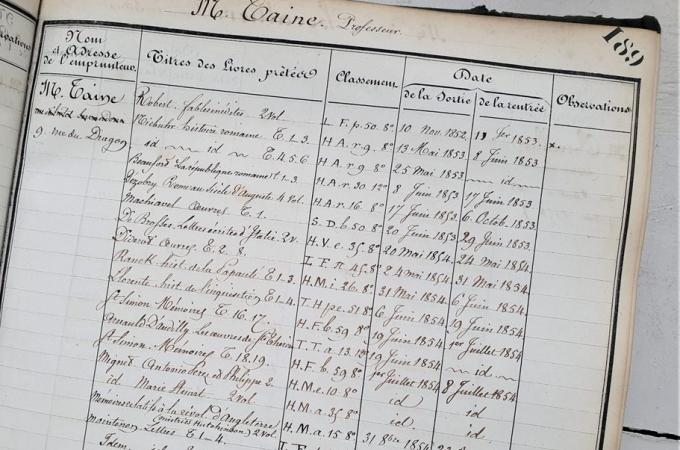 M. Taine. Professeur.
189
Nom et Adresse de l'emprunteur. Titres des Livres prêtés Classement Date de la Sortie de la rentrée Observations
M. Taine
9. rue du Dragon
Robert. fables inédites. 2 vol. L. F. p. 50. 8° 10 Nov. 1852. 1853. x.
Niebuhr histoire romaine T. 1. 3. H. A. r. 9. 8° 13 Mai 1853 8 Juin 1853
id id T. 4. 5. 6. H. A. r. 9. 8° 25 Mai 1853 id
Beaufort La république romaine t. 1. 3 H. A. r. 30. 12° 8 Juin 1853 17 Juin 1853
Dezobry Rome au Siècle d'Auguste 4 vol. H. A. r. 16. 8° 17 Juin 1853 6 Octob. 1853.
Machiavel œuvres T. 1. S. D. b. 50. 8° 20 Juin 1853 29 Juin 1853.
De Brosses. Lettres écrites d'Italie. 2 v. H. V. e. 35. 8° 20 Mai 1854. 24 Mai 1854.
Diderot œuvres T. 2. 8. L. F. π. 45. 8° 24 mai 1854. 31 Mai 1854.
Ranck hist. de la Papauté T. 1-3. H. M. i. 26. 8° 31 Mai 1854. 6 Juin 1854.
Llorente hist. de l'inquisition T. 1-4. T. H. pe. 51. 8° 6 Juin 1854. 19 Juin 1854.
St Simon Mémoires T. 16. 17. H. F. b. 59. 8° 19 Juin 1854. 1er Juillet 1854
Arnauld D'andilly Les œuvres de Ste Thérèse T. T. a. 13. 12° 19 Juin 1854. id
St Simon. Mémoires T. 18. 19. H. F. b. 59. 8° 1er Juillet 1854 8 Juillet 1854
Mignet Antonio Perez et Philippe 2 H. M. e. 10. 8° id. id
id. Marie Stuart. 2 vol. H. M. a. 35. 8° id. id
Mémoires relatifs à la révol. d'Angleterre
(mistriss Hutchinson) 2 vol. H. M. a. 15. 8° id.
Maintenon Lettres T. 1-4. 31 8bre 1854
Idem